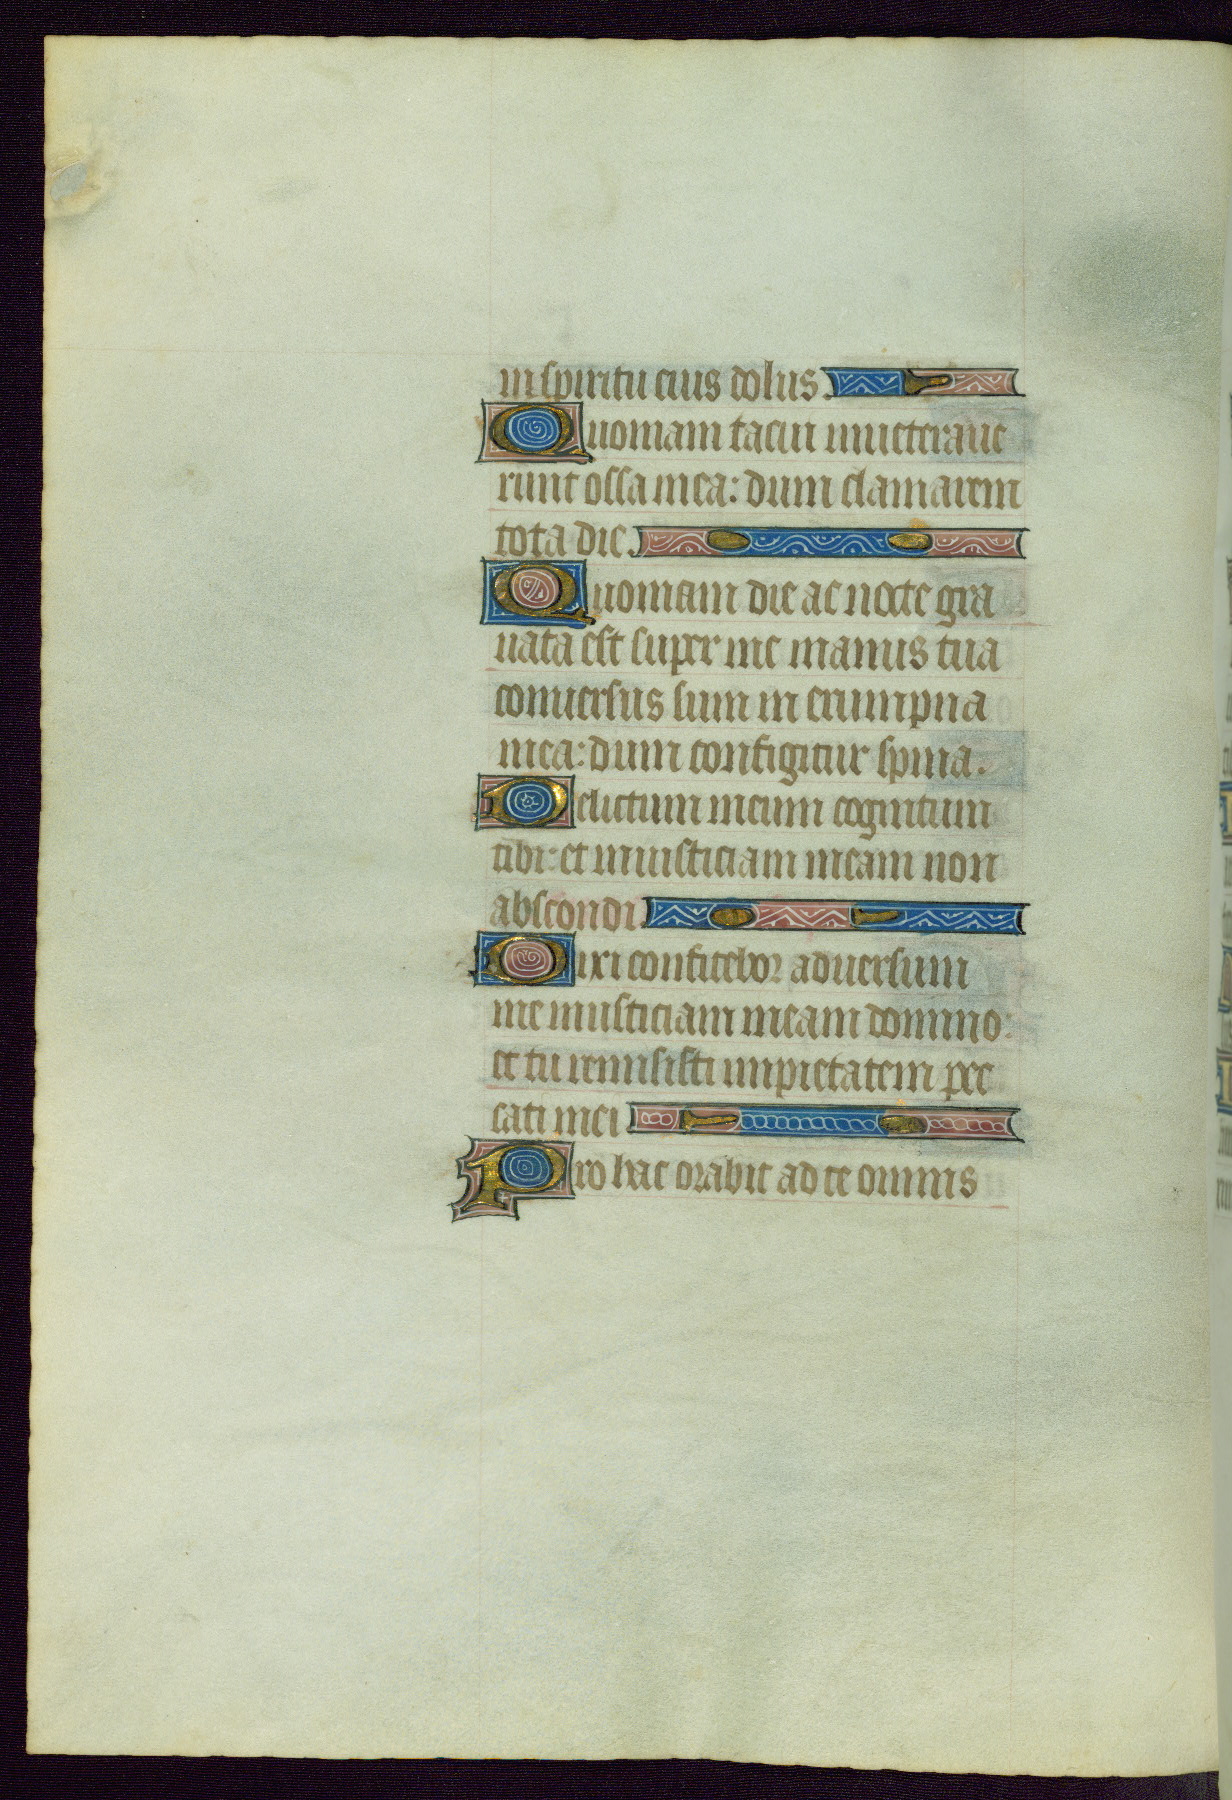 in spiritu eius dolus.
Quoniam tacui inueteraue
runt ossa mea: dum clamarem
tota die.
Quoniam die ac nocte gra
uata est super me manus tua
conuersus sum in erumpna
mea: dum configitur spina.
Delictum meum cognitum
tibi: et iniusticiam meam non
abscondi
Dixi confitebor aduersum
me iniusticiam meam domino:
et tu remisisti impietatem pec
cati mei
Pro hac orabit ad te omnis